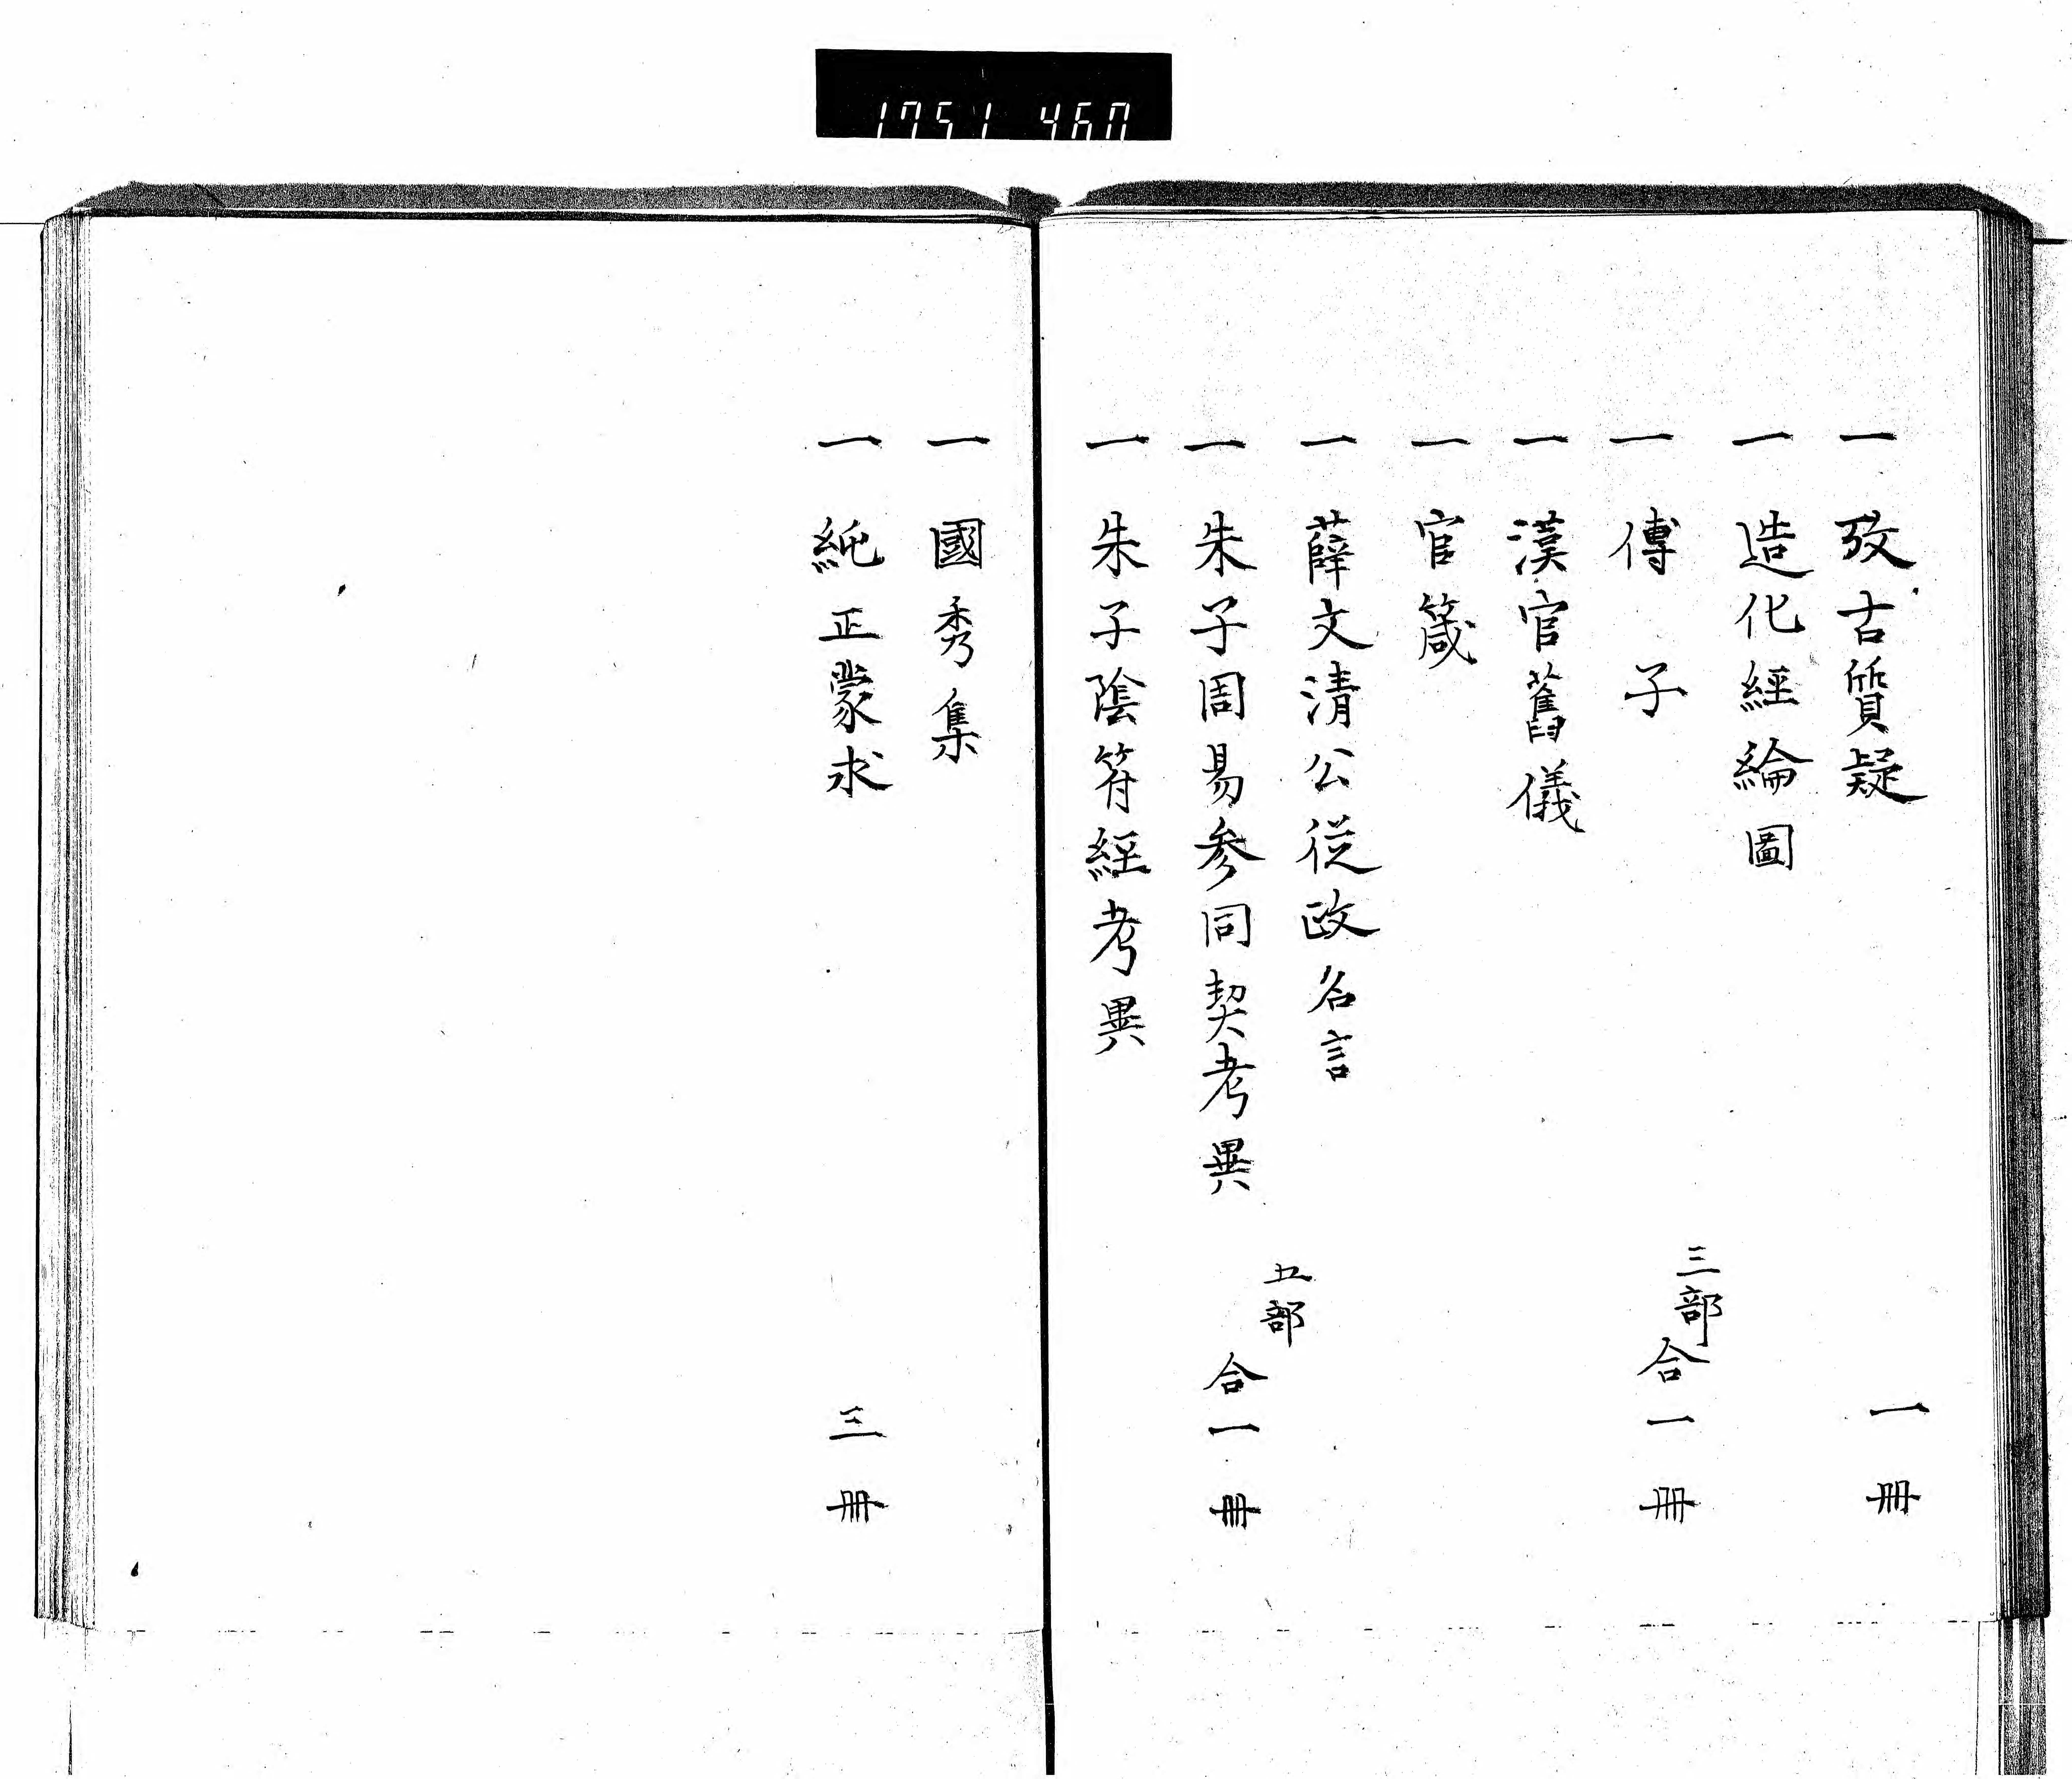 1751 460
一 攷古質疑 一冊
一 造化經綸圖
一 傅子
三部
合一冊
一 漢官舊儀
一 官箴
一 薛文清公従政名言
五部
一 朱子周易参同契考異 合一冊
一 朱子陰符經考異
一 國秀集
一 純正蒙求 三冊